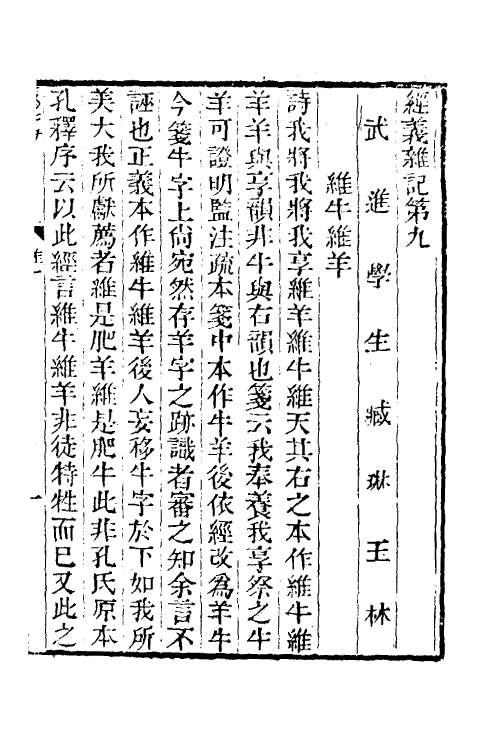 經義雜記第九
武進學生臧琳玉林
維牛維羊
詩我將我將我享維羊維牛維天其右之本作維牛維
羊羊與享韻非牛與右韻也箋云我奉養我享祭之牛
羊可證明監注疏本箋中本作牛羊後依經改爲羊牛
今箋牛字上尙宛然存羊字之跡識者審之知余言不
誣也正義本作維牛維羊後人妄移牛字於下如我所
美大我所獻薦者維是肥羊維是肥牛此非孔氏原本
孔釋序云以此經言維牛維羊非徒特牲而已又此之
一